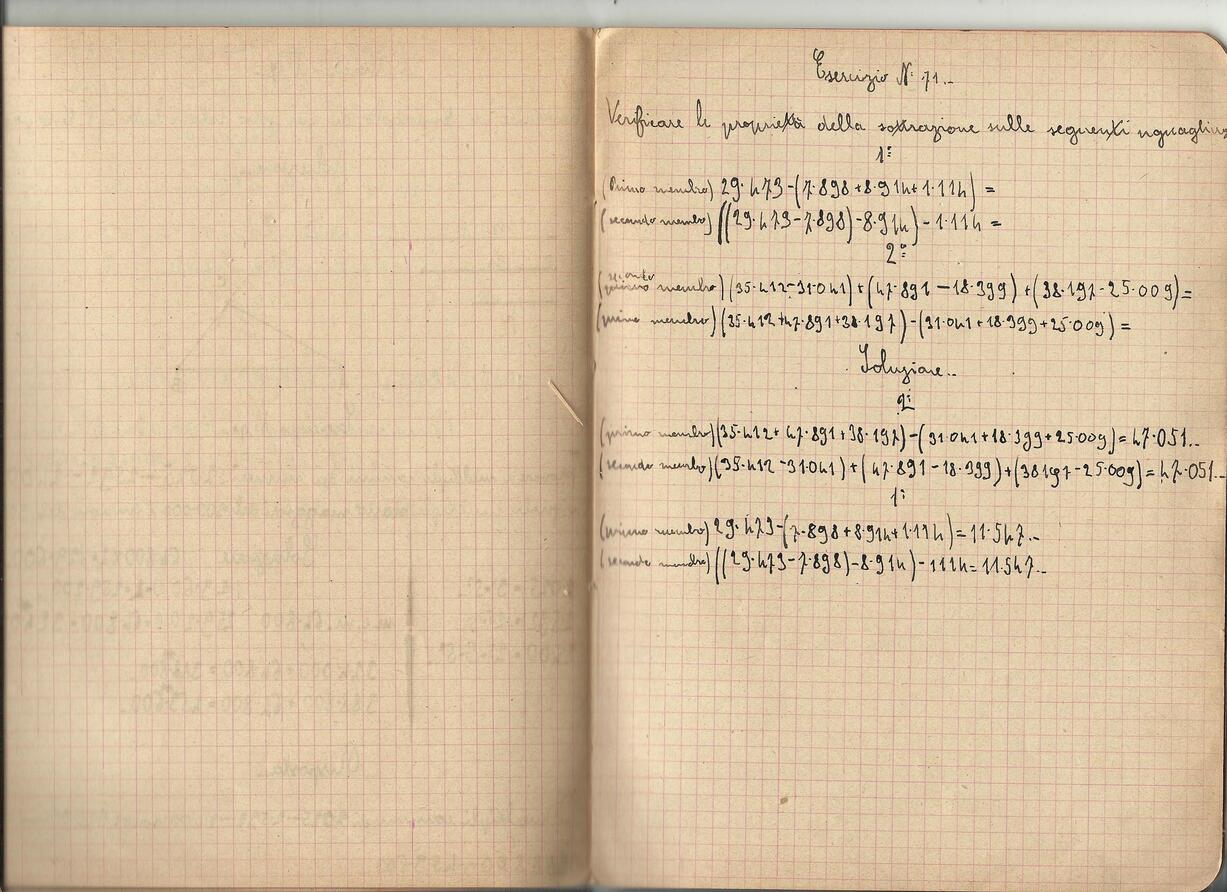 Esercizio N: 71..
Verificare le proprietà della sottrazione sulle seguenti uguaglian
1º:
(Primo membro) 29·473-(7·898+8·914+1·114) =
(secondo membro) ((29·473-7·898)-8·914)-1·114 =
2º:
(secondo primo membro) (35·412-31·041)+(47·891-18·399)+(38·197-25·009)=
(primo membro) (35·412+47·891+38·197)-(31·041+18·399+25·009)=
Soluzione..
2º:
(primo membro) (35·412+47·891+38·197)-(31·041+18·399+25·009)=47·051..
(secondo membro) (35·412-31·041)+(47·891-18·399)+(38197-25·009)=47·051..
1º:
(primo membro) 29·473-(7·898+8·914+1·114)=11·547..
(secondo membro) ((29·473-7·898)-8·914)-1114=11·547..